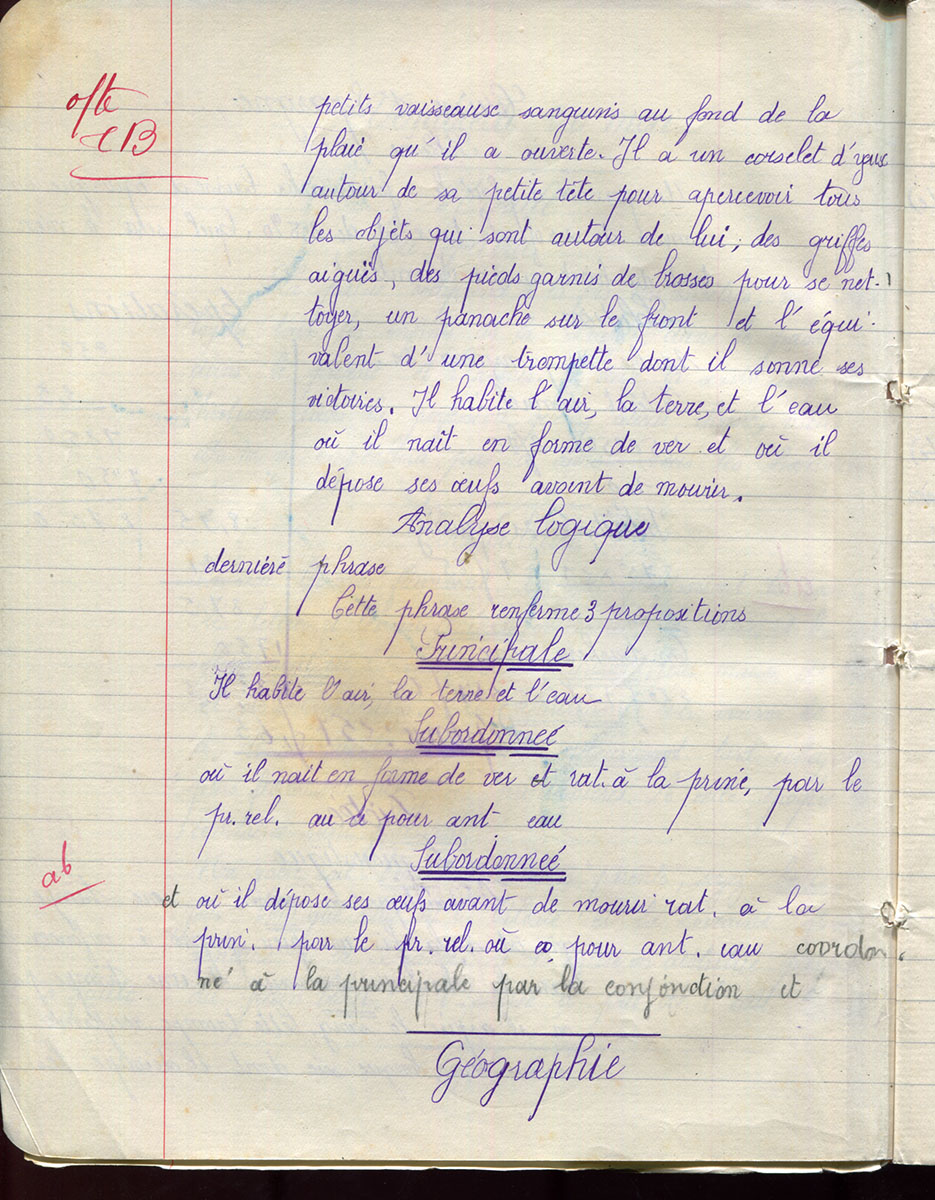 ofte
TB
petits vaisseause sanguins au fond de la
plaie qu'il a ouverte. Il a un corselet d'yeux
autour de sa petite tête pour apercevoir tous
les objets qui sont autour de lui, des griffes
aiguës, des pieds garnis de brosses pour se net-
toyer, un panache sur le front et l'équi-
valent d'une trompette dont il sonne ses
victoires. Il habite l'air, la terre, et l'eau
où il naît en forme de ver et où il
dépose ses œufs avant de mourir.
Analyse logique
dernière phrase
Cette phrase renferme 3 propositions
Principale
Il habite l'air, la terre et l'eau
Subordonneé
où il nait en forme de ver et rat. à la princ, par le
pr. rel. où a pour ant eau
Subordonneé
ab
et où il dépose ses œufs avant de mourir rat. à la
prin. par le pr. rel. où a, pour ant. eau coordon
né à la principale par la conjonction et
Géographie